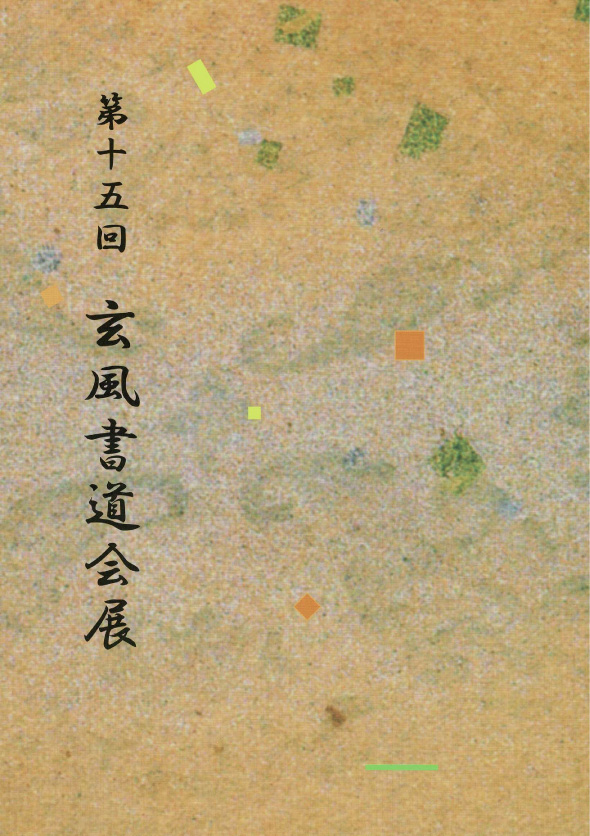 第十五回 玄風書道会展